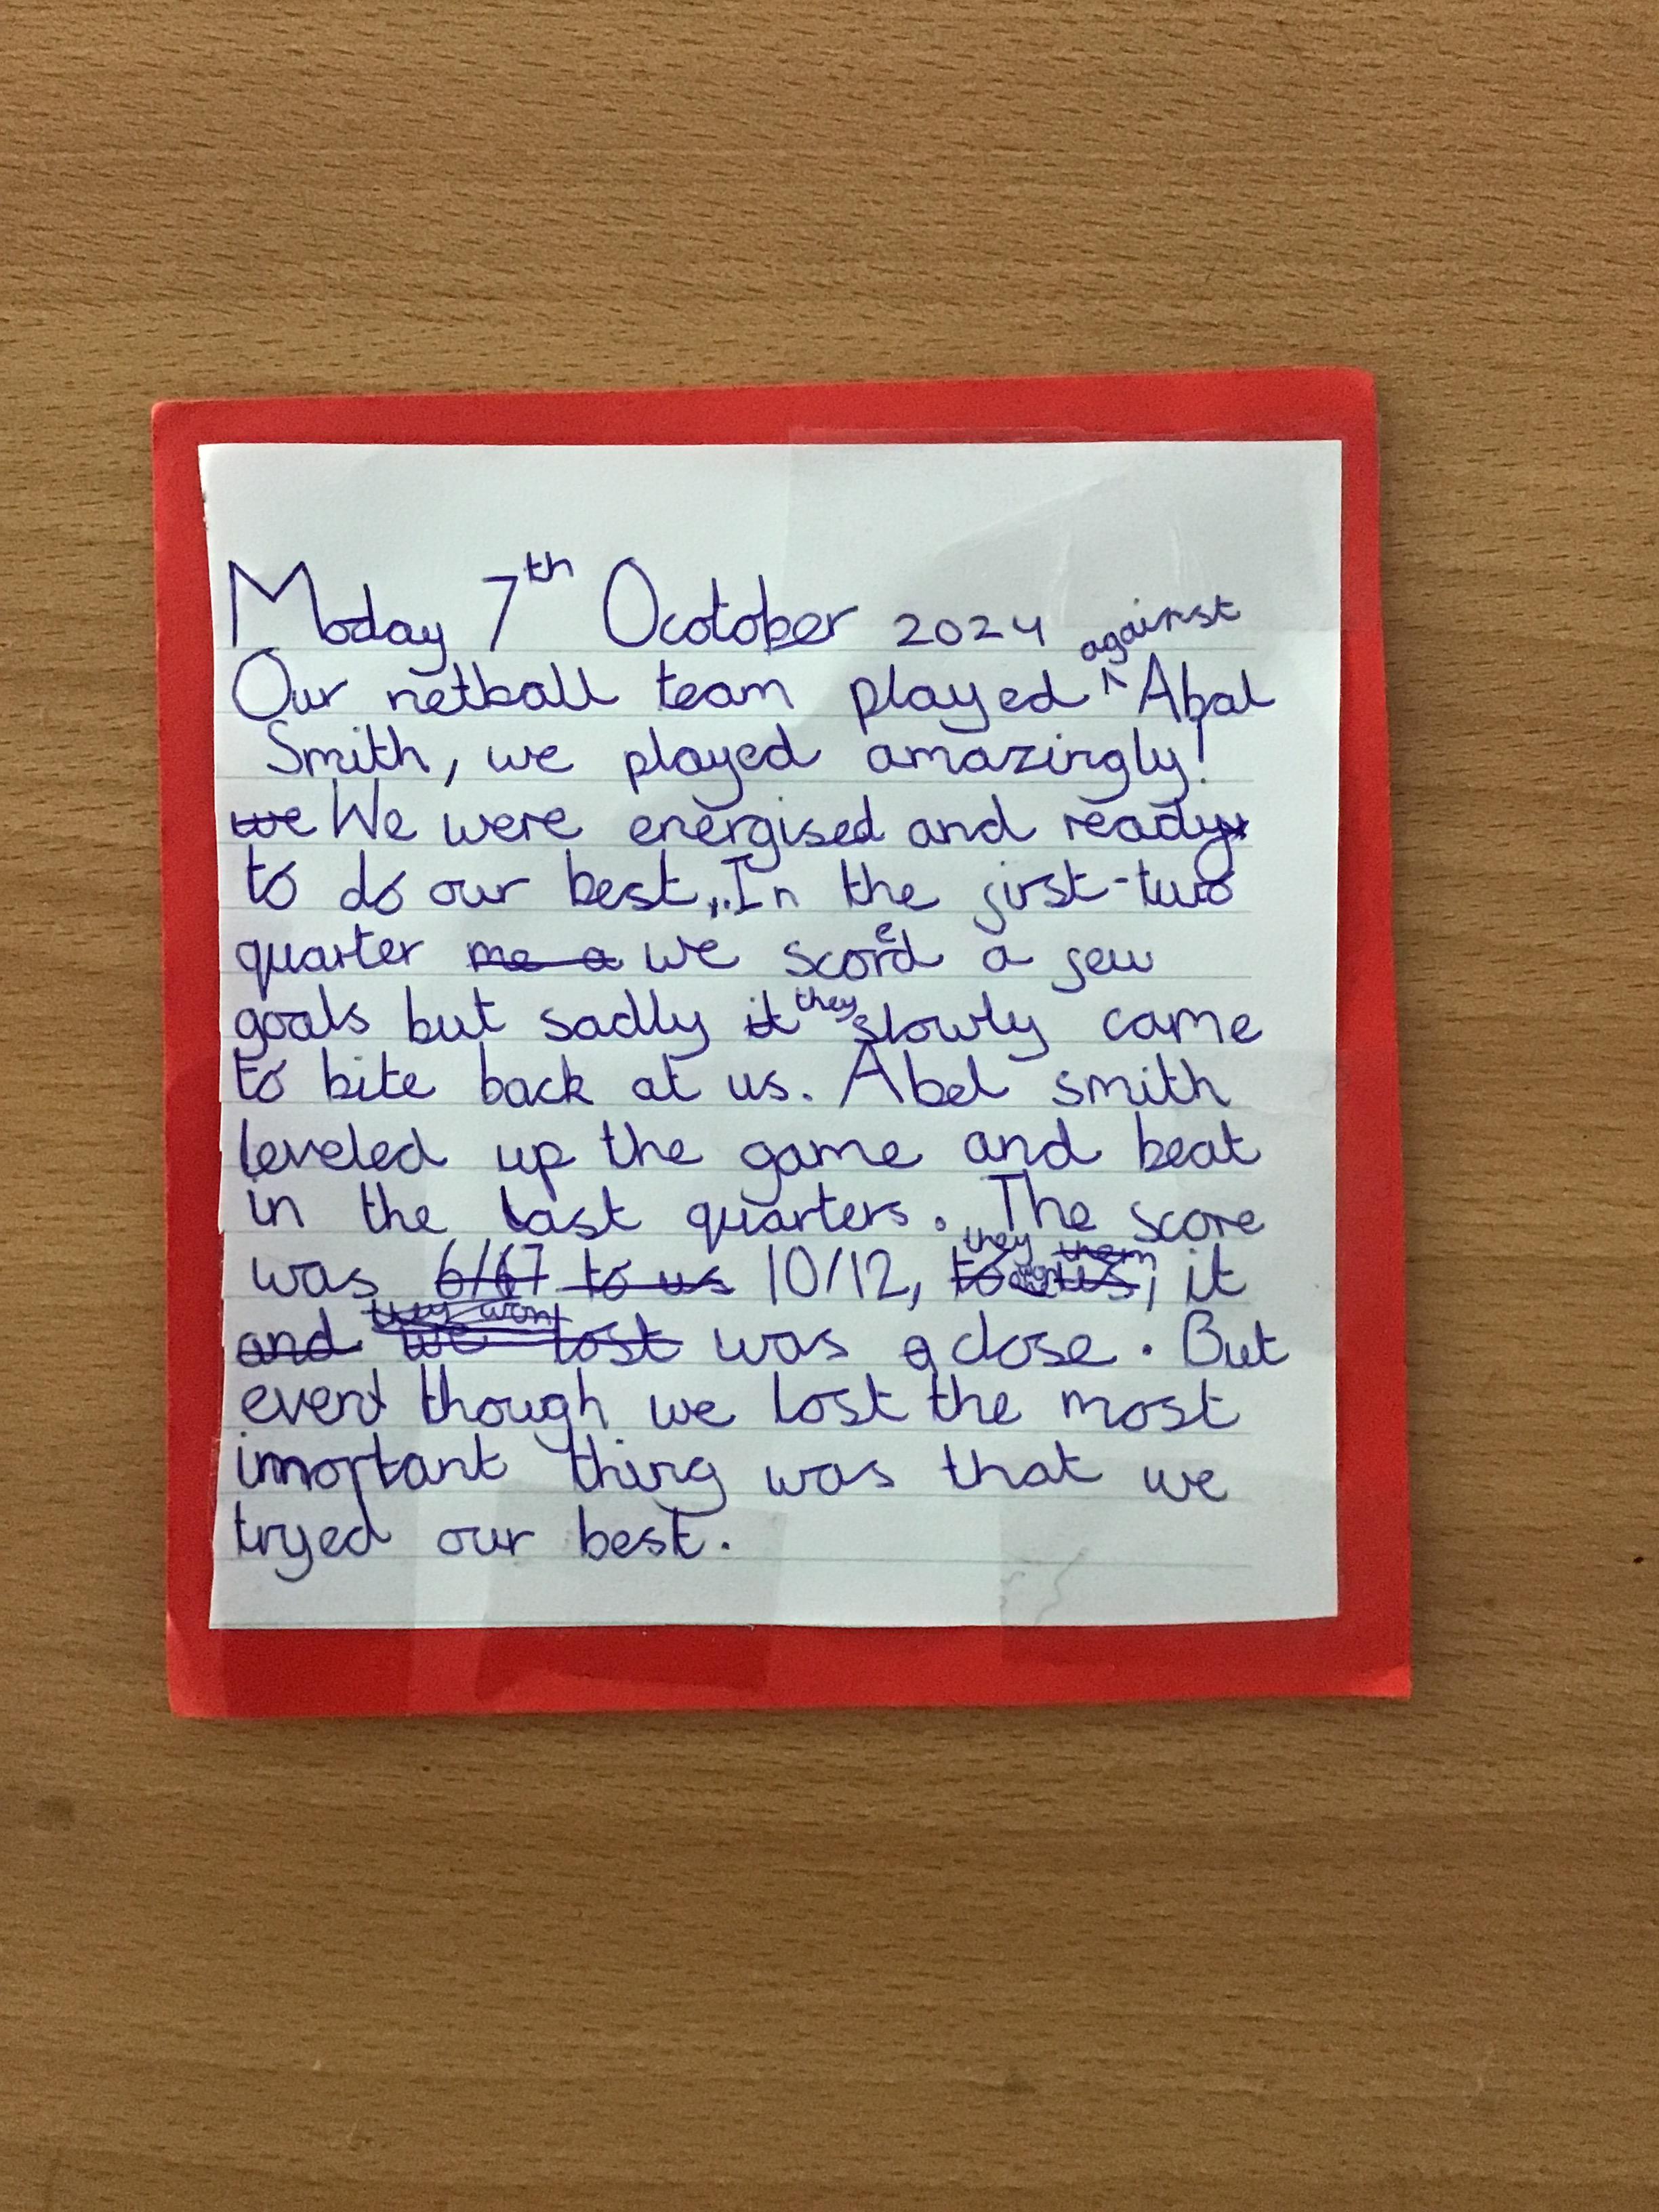 Moday 7th Ocotober 2024
Our netball team played against Abal
Smith, we played amazingly!
we We were energised and ready
to do our best, In the first-two
quarter me a we scored a few
goals but sadly it they slowly came
to bite back at us. Abel smith
leveled up the game and beat
in the last quarters. The score
was 6/67 to us 10/12, they them it
and they won we lost was a close. But
even though we lost the most
imortant thing was that we
tryed our best.